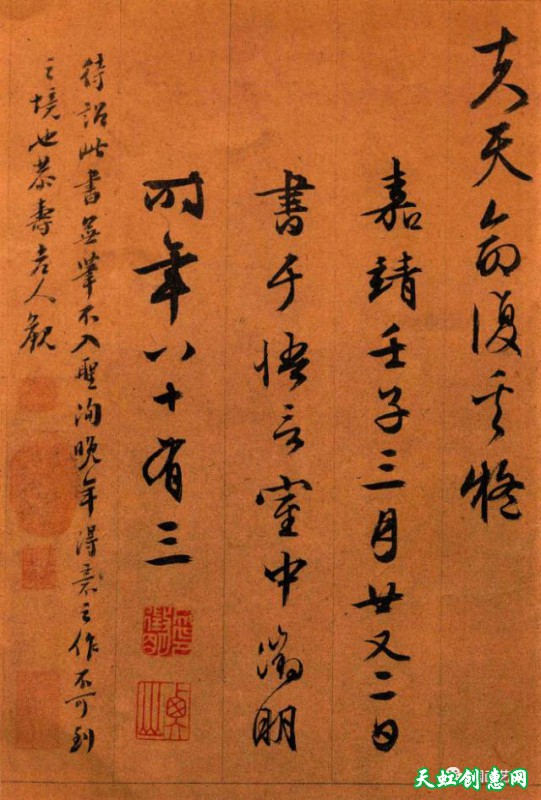 夫天命復奚疑
嘉靖壬子三月廿又二日
書于悟言室中徵明
時年八十有三
待詔此書無筆不入聖洵晚年得意之作不可到
之境也恭壽老人觀
天虹创惠网